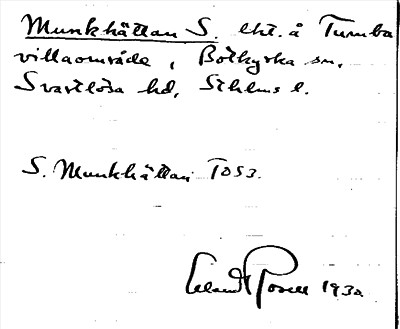 Munkhättan S. lht. å Tumba
villaområde, Botkyrka sn,
Svartlösa hd, Sthlms l.
S. Munkhättan TOS3.
Erland Rosell 1932